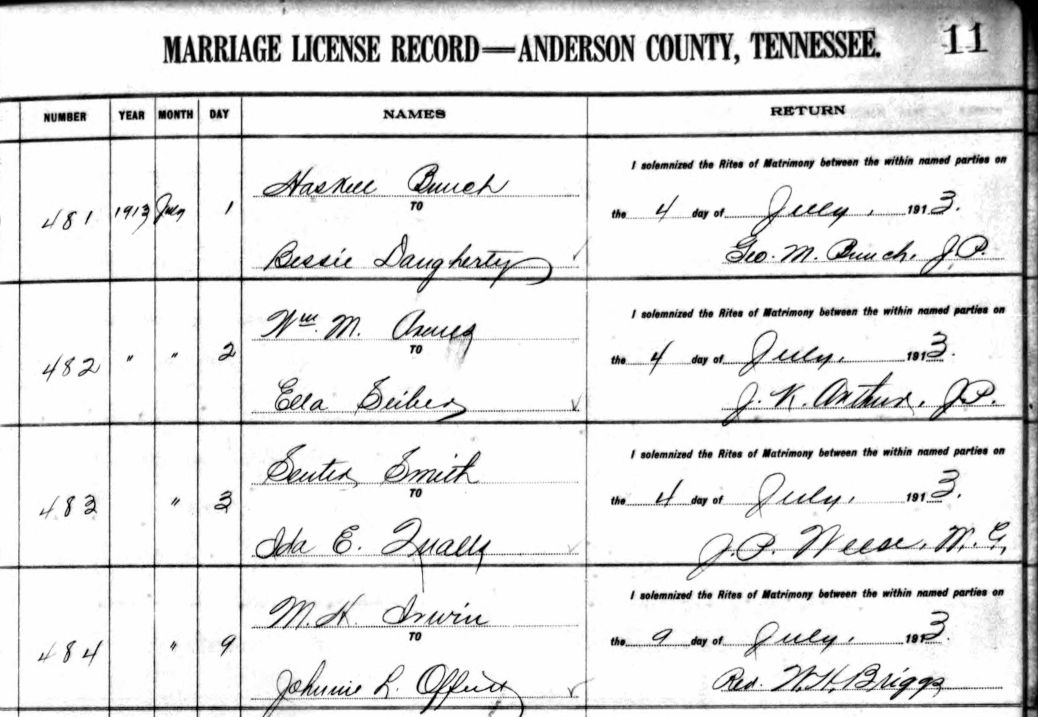 MARRIAGE LICENSE RECORD—ANDERSON COUNTY, TENNESSEE. 11
NUMBER YEAR MONTH DAY NAMES RETURN
I solemnized the Rites of Matrimony between the within named parties on
Haskell Bunch
481 1913 July 1 TO the 4 day of July, 1913.
Bessie Daugherty Geo. M. Bunch, J.P.
I solemnized the Rites of Matrimony between the within named parties on
Wm. M.
482 " " 2 TO the 4 day of July, 1913.
Ella Seiber J. K. Arthur, J.P.
I solemnized the Rites of Matrimony between the within named parties on
Senter Smith
483 " 3 TO the 4 day of July, 1913.
Ida E. J. P. Weese, M. G.
I solemnized the Rites of Matrimony between the within named parties on
M. H. Irwin
484 " 9 TO the 9 day of July, 1913.
Johnnie L. Offutt Rev. W. H. Briggs